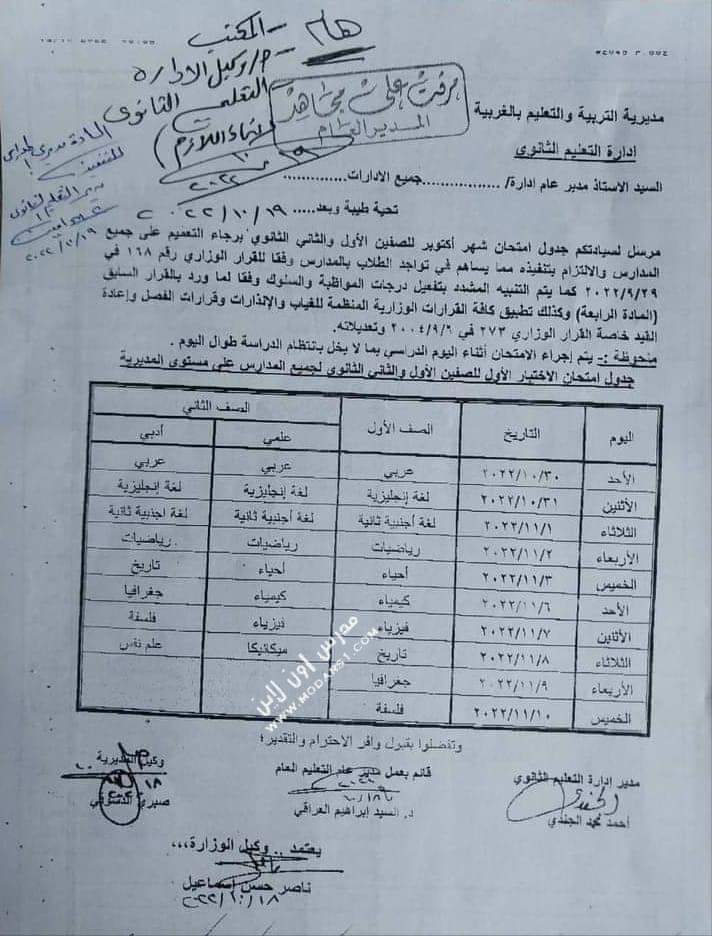 هام
- المكتب
- م/ وكيل الادارة
التعليم الثانوى
لاتخاذ اللازم
١٠/١٩
٢٠٢٢
مرفت على مجاهد
المدير العام
السادة مديرى
للتنفيذ
مدير التعليم الثانوى
٢٠٢٢/١٠/١٩
مديرية التربية والتعليم بالغربية
إدارة التعليم الثانوي
السيد الاستاذ مدير عام إدارة/ ................جميع الادارات.............
تحية طيبة وبعد..... ٢٠٢٢/١٠/١٩
مرسل لسيادتكم جدول امتحان شهر أكتوبر للصفين الأول والثاني الثانوي برجاء التعميم على جميع
المدارس والالتزام بتنفيذه مما يساهم في تواجد الطلاب بالمدارس وفقا للقرار الوزاري رقم ١٦٨ في
٢٠٢٢/٩/٢٩ كما يتم التنبيه المشدد بتفعيل درجات المواظبة والسلوك وفقا لما ورد بالقرار السابق
(المادة الرابعة) وكذلك تطبيق كافة القرارات الوزارية المنظمة للغياب والإنذارات وقرارات الفصل وإعادة
القيد خاصة القرار الوزاري ٢٧٣ في ٢٠٠٤/٩/٦ وتعديلاته.
ملحوظة :- يتم إجراء الامتحان أثناء اليوم الدراسي بما لا يخل بانتظام الدراسة طوال اليوم .
جدول امتحان الاختبار الأول للصفين الأول والثاني الثانوي لجميع المدارس على مستوى المديرية
اليوم التاريخ الصف الأول الصف الثاني
علمي أدبي
الأحد ٢٠٢٢/١٠/٣٠ عربي عربي عربي
الأثنين ٢٠٢٢/١٠/٣١ لغة إنجليزية لغة إنجليزية لغة إنجليزية
الثلاثاء ٢٠٢٢/١١/١ لغة أجنبية ثانية لغة أجنبية ثانية لغة اجنبية ثانية
الأربعاء ٢٠٢٢/١١/٢ رياضيات رياضيات رياضيات
الخميس ٢٠٢٢/١١/٣ أحياء أحياء تاريخ
الأحد ٢٠٢٢/١١/٦ كيمياء كيمياء جغرافيا
الأثنين ٢٠٢٢/١١/٧ فيزياء فيزياء فلسفة
الثلاثاء ٢٠٢٢/١١/٨ تاريخ ميكانيكا علم نفس
الأربعاء ٢٠٢٢/١١/٩ جغرافيا
الخميس ٢٠٢٢/١١/١٠ فلسفة
مدرس اون لاين
WWW.MODARS1.COM
وتفضلوا بقبول وافر الاحترام والتقدير؛
مدير إدارة التعليم الثانوي
الجندي
أحمد محمد الجندي
قائم بعمل مدير عام التعليم العام
د. السيد إبراهيم العراقي
وكيل المديرية
صبري الدسوقي
يعتمد .. وكيل الوزارة،،،
ناصر حسن إسماعيل
٢٠٢٢/١٠/١٨